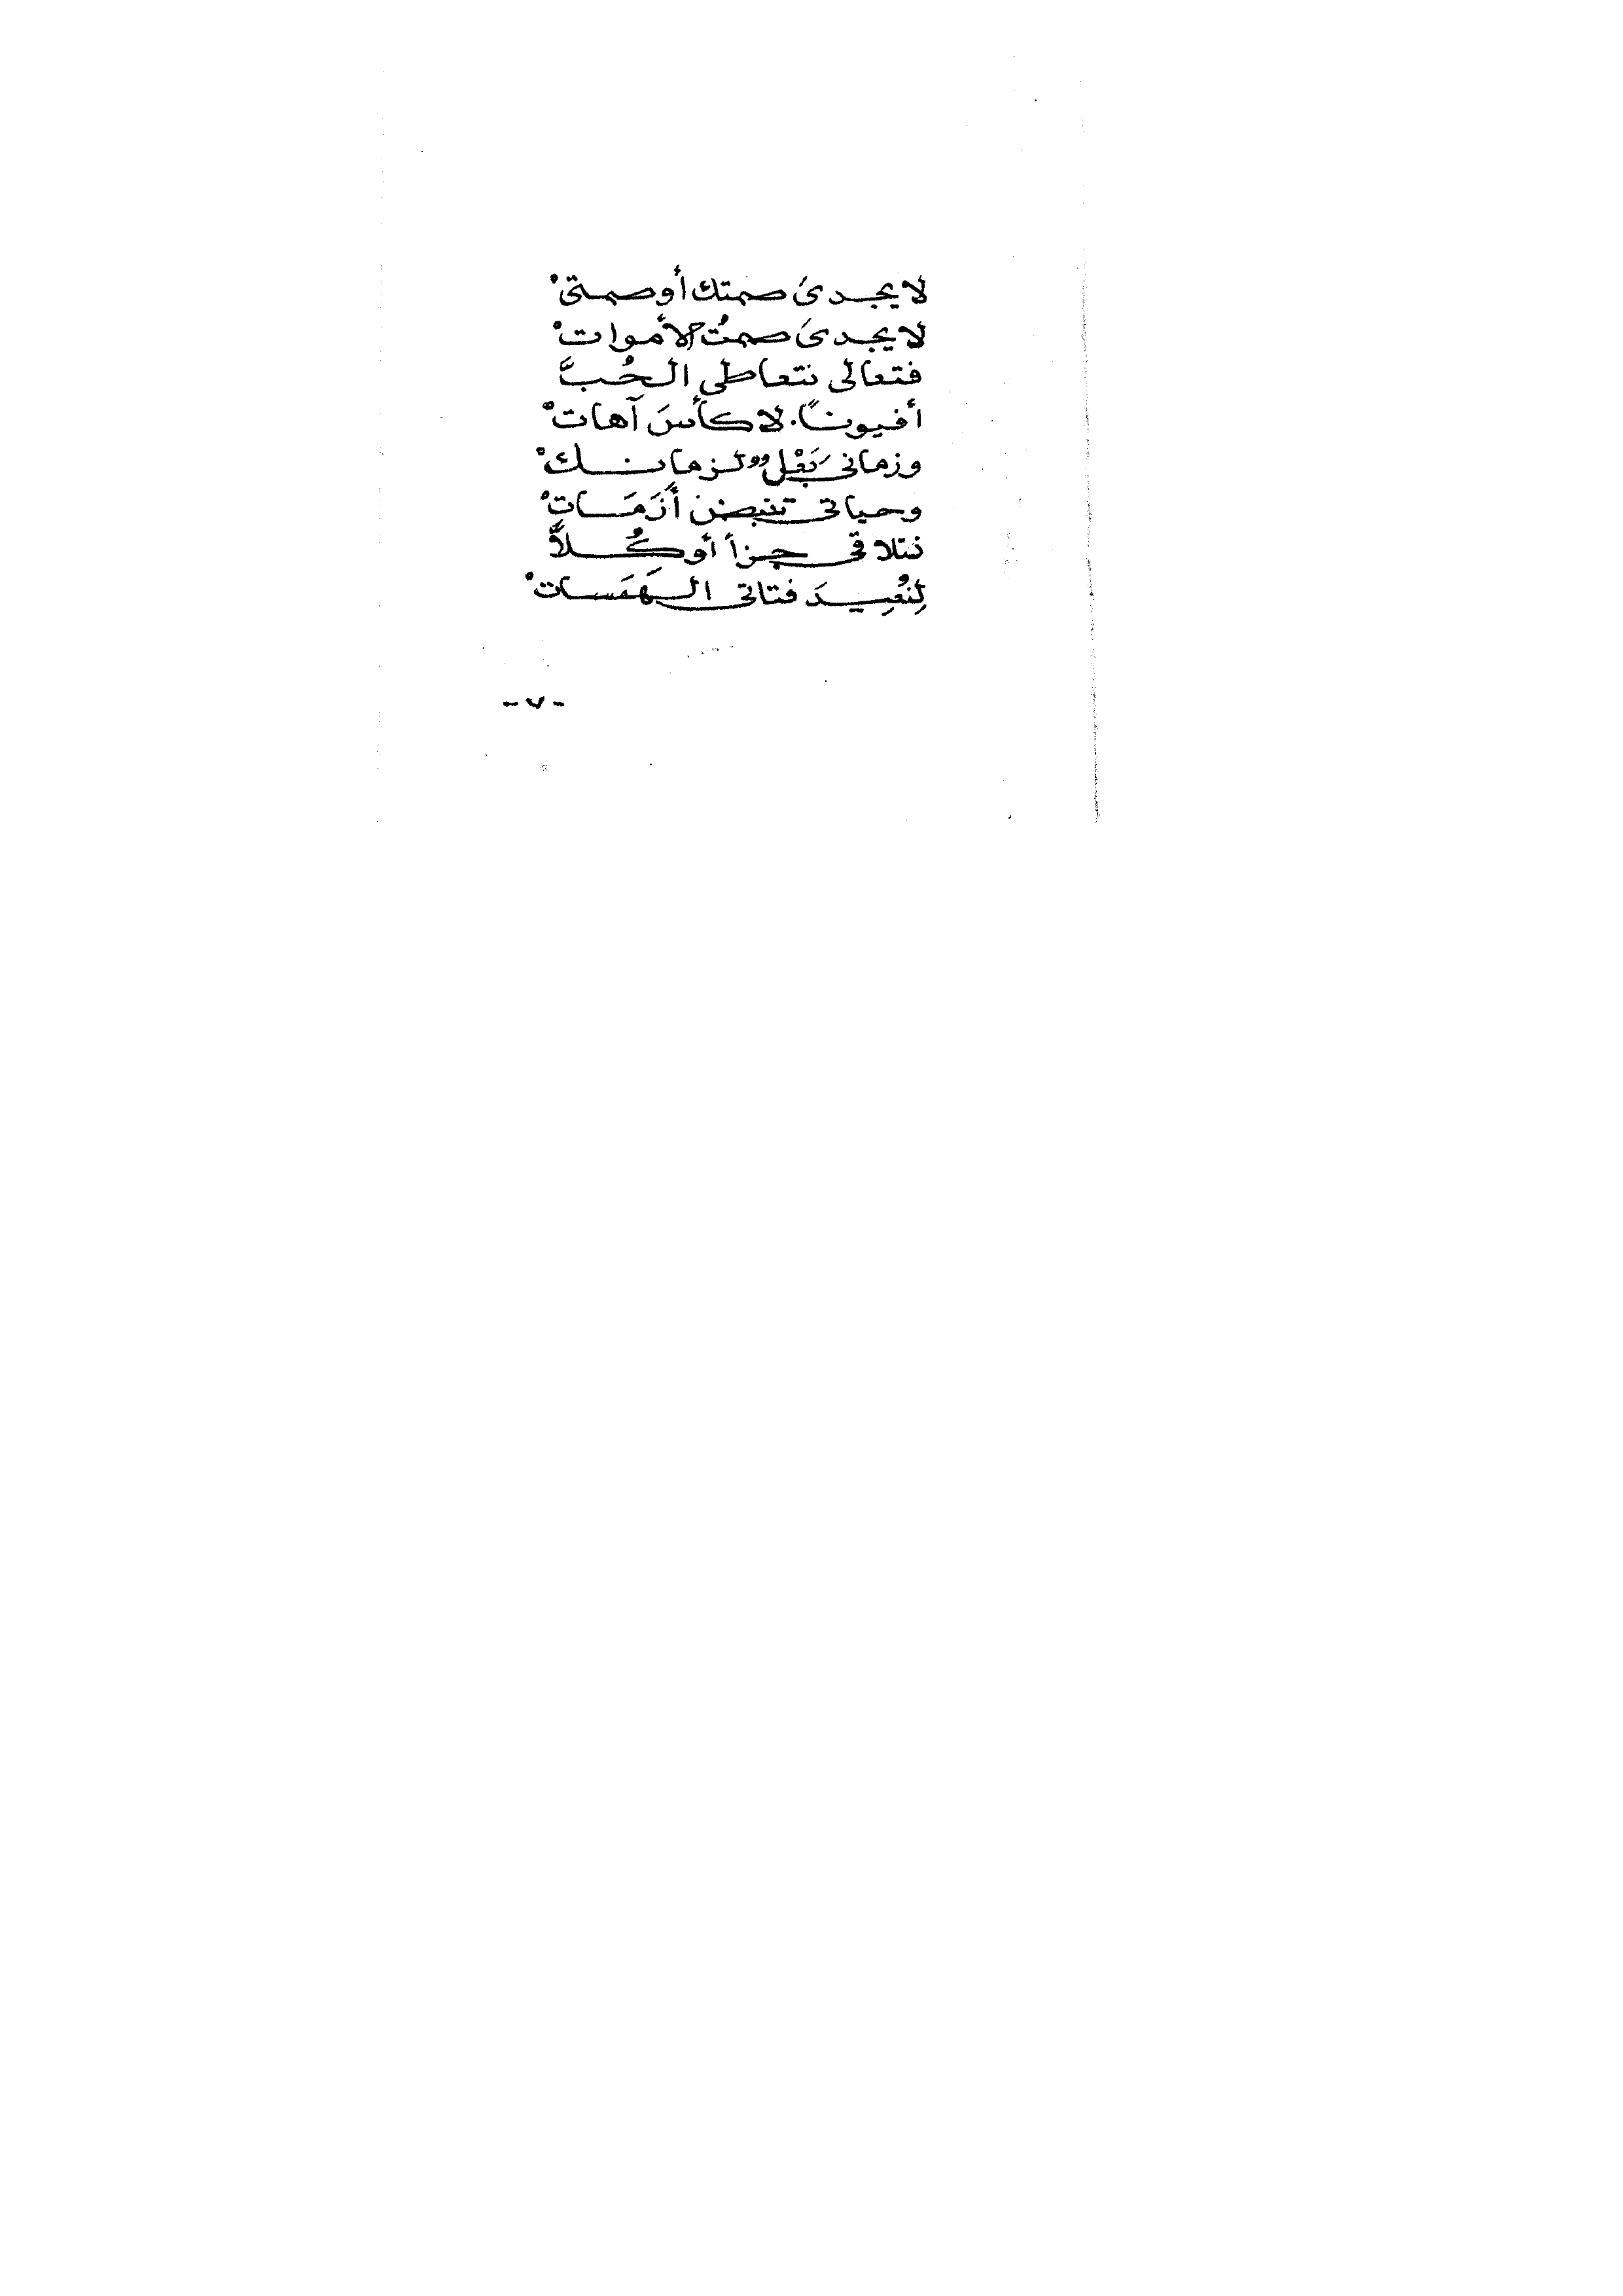 لا يجدىَ صمتك أو صمتىْ
لا يجدىَ صمتُ الأمواتْ
فتعالى نتعاطى الحُبَّ
أفيوناً. لا كأسَ آهاتْ
وزمانى بَغْلٌ لزمانكْ
وحياتى تنبض أَزَمَاتْ
نتلاقى جزأ أو كُلاًّ
لِنُعِيدَ فتاتى الهَمَساتْ
- ٧ -